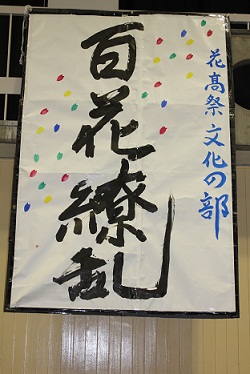 花高祭 文化の部
百花繚乱